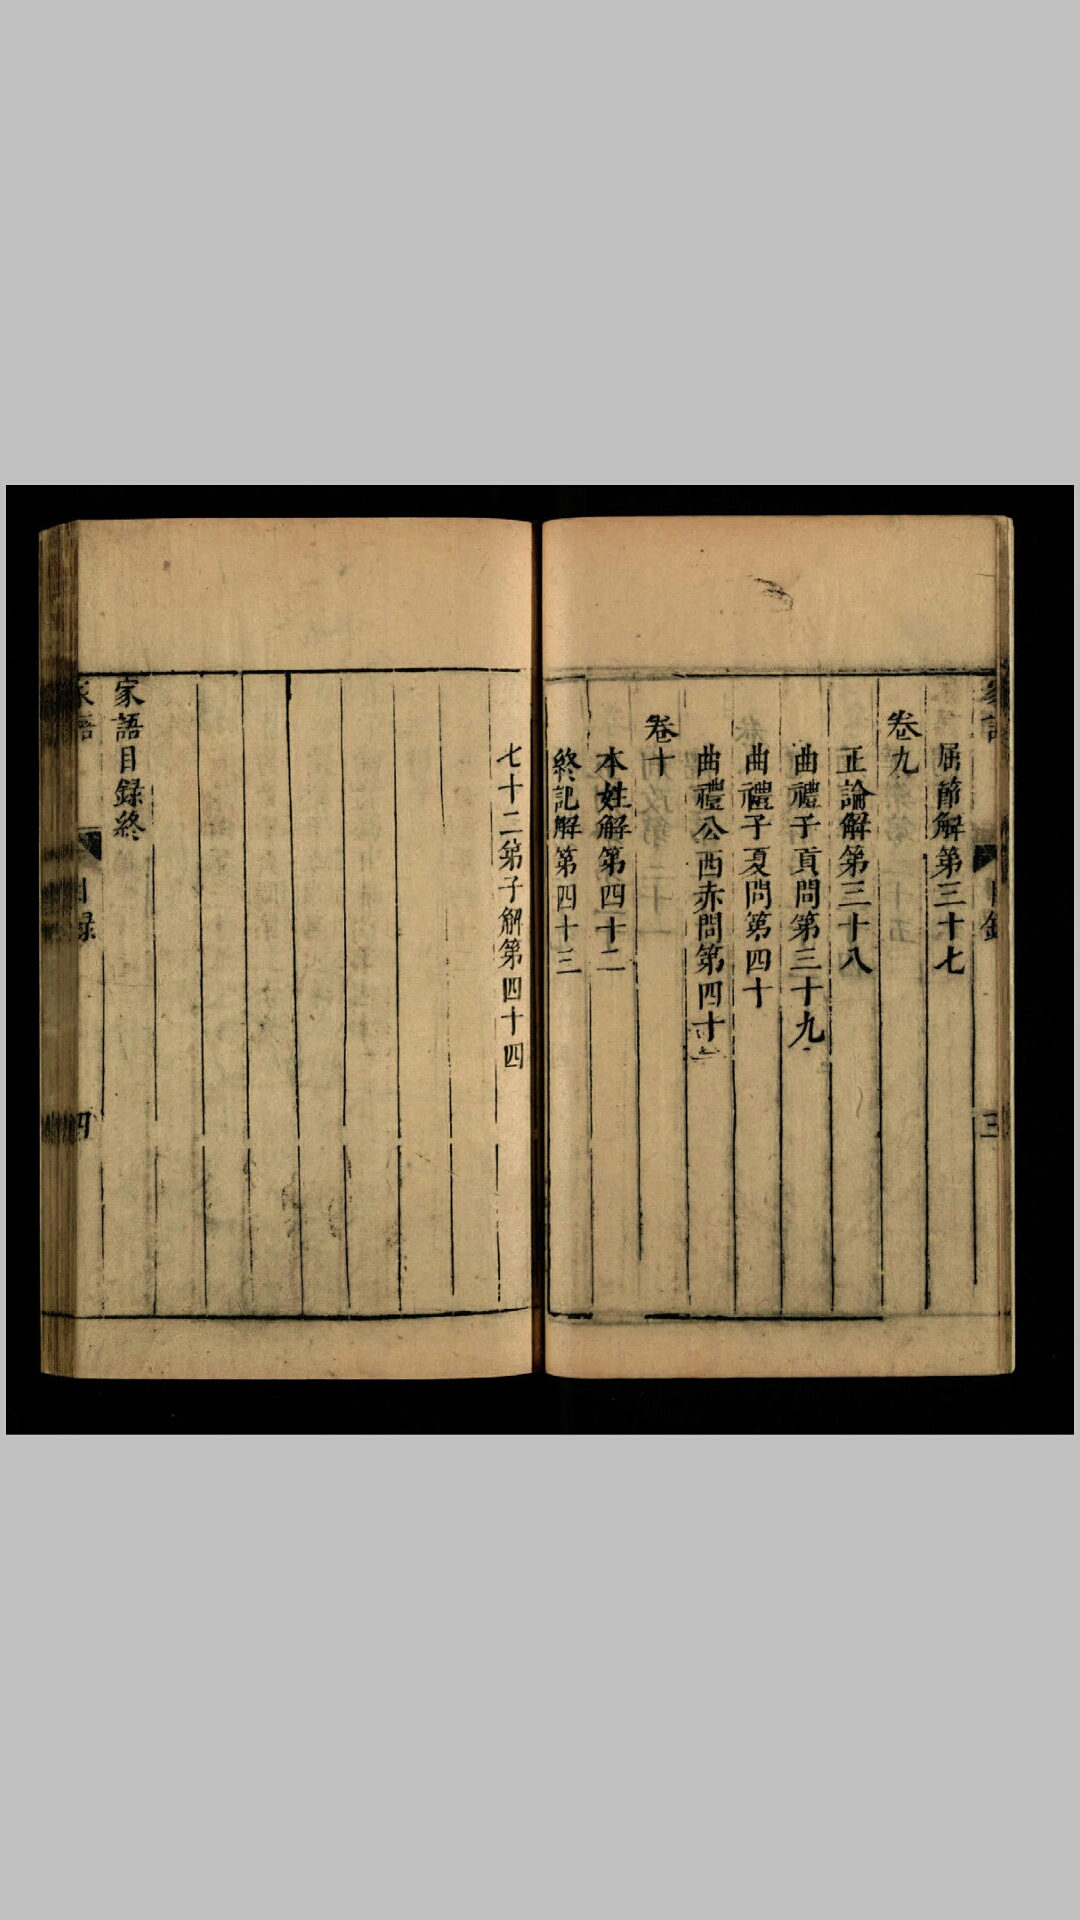 家語
目錄
三
屈節解第三十七
卷九
正論解第三十八
曲禮子貢問第三十九
曲禮子夏問第四十
曲禮公西赤問第四十一
卷十
本姓解第四十二
終記解第四十三
七十二弟子解第四十四
家語目録終
家語
目録
四